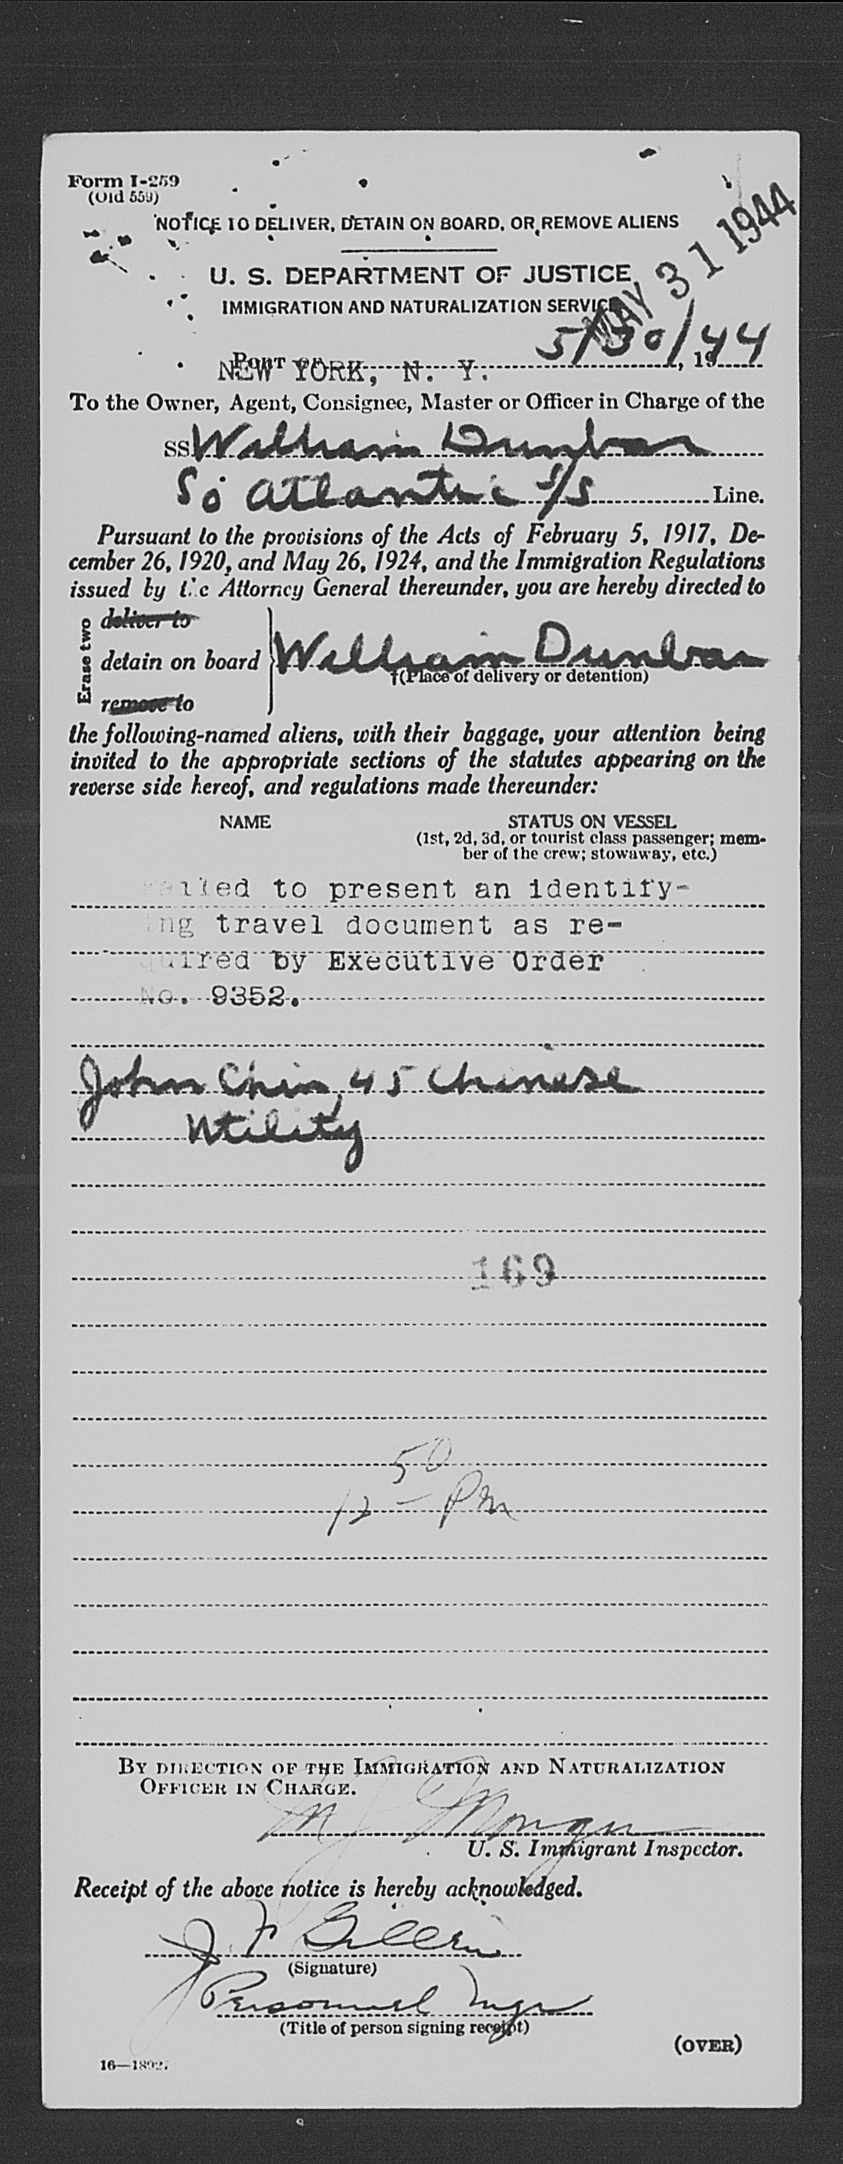 Form I-259
(Old 559)
NOTICE TO DELIVER, DETAIN ON BOARD, OR REMOVE ALIENS
MAY 31 1944
U. S. DEPARTMENT OF JUSTICE
IMMIGRATION AND NATURALIZATION SERVICE
5/30/44
Port of NEW YORK, N. Y. , 19
To the Owner, Agent, Consignee, Master or Officer in Charge of the
SS William Dunbar
So Atlantic S/S Line.
Pursuant to the provisions of the Acts of February 5, 1917, De-
cember 26, 1920, and May 26, 1924, and the Immigration Regulations
issued by the Attorney General thereunder, you are hereby directed to
Erase two
deliver to
detain on board William Dunbar
†(Place of delivery or detention)
remove to
the following-named aliens, with their baggage, your attention being
invited to the appropriate sections of the statutes appearing on the
reverse side hereof, and regulations made thereunder:
NAME STATUS ON VESSEL
(1st, 2d, 3d, or tourist class passenger; mem-
ber of the crew; stowaway, etc.)
ailed to present an identify-
ing travel document as re-
quired by Executive Order
No. 9352.
John Chin, 45 Chinese
Utility
169
12 50 PM
By direction of the Immigration and Naturalization
Officer in Charge.
M J
U. S. Immigrant Inspector.
Receipt of the above notice is hereby acknowledged.
J. F.
(Signature)
Personnel Mgr
(Title of person signing receipt)
(OVER)